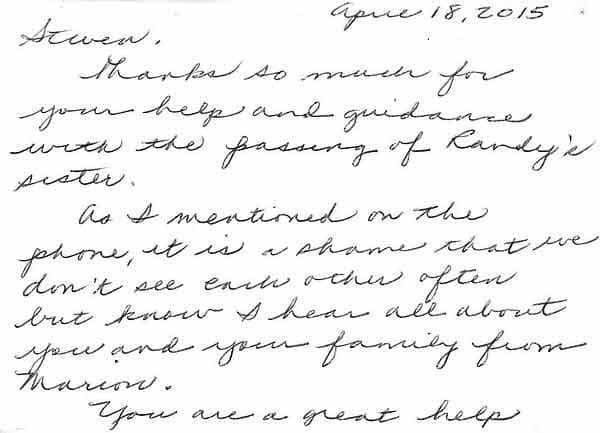 April 18, 2015
Steven.
Thanks so much for
your help and guidance
with the passing of Randy's
sister.
As I mentioned on the
phone, it is a shame that we
don't see each other often
but know I hear all about
you and your family from
Marion.
You are a great help